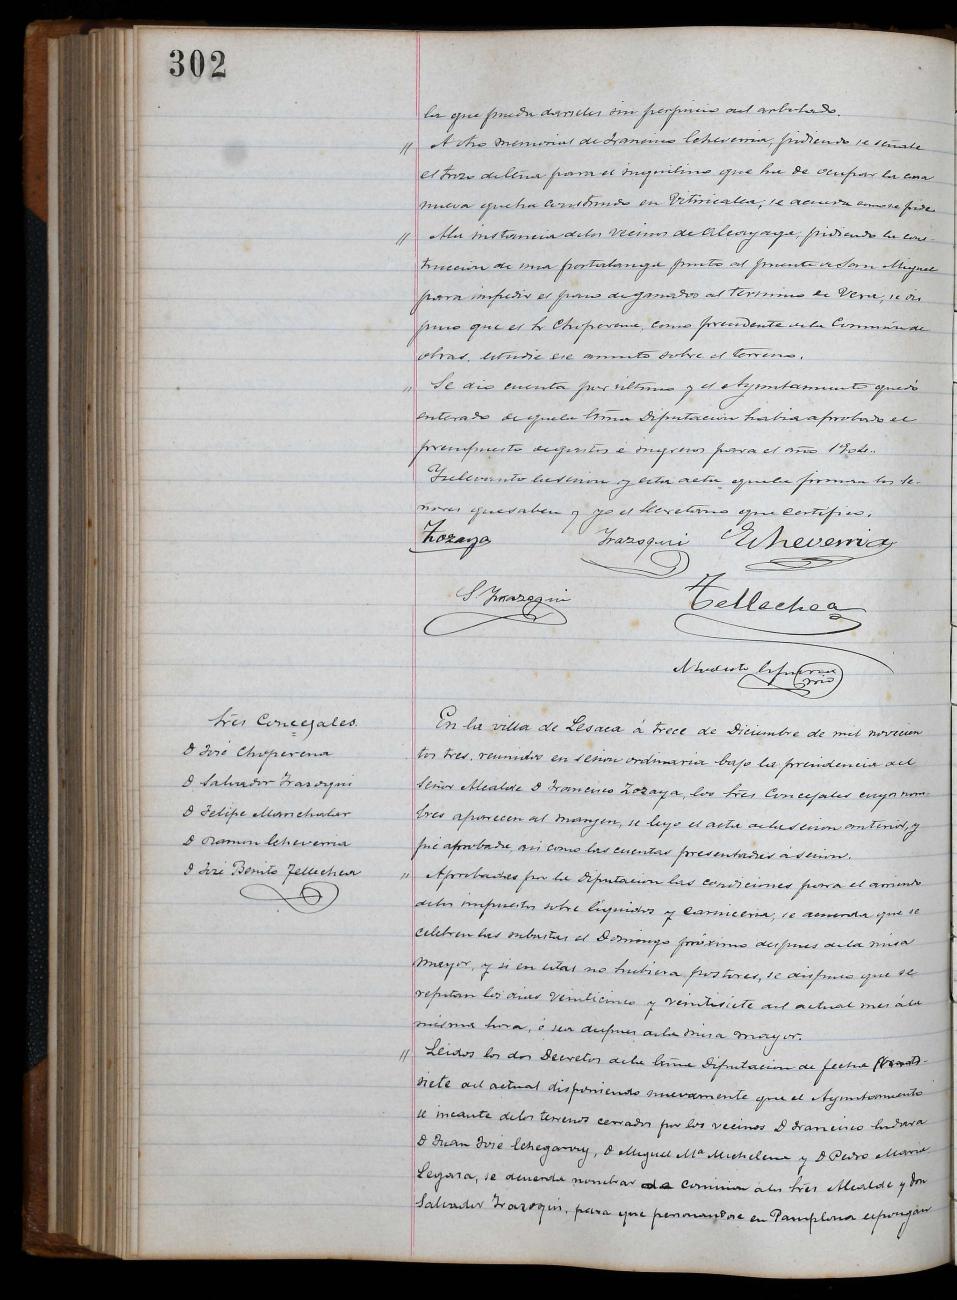 302
la que pueda darseles sin perjuicio del arbolado.
" A otro memorial de Francisco Echeverria, pidiendo se señale
el trozo de leña para el inquilino que ha de ocupar la casa
nueva que ha construido en, se acuerda como se pide
" A la instancia de los vecinos de Alcayaga, pidiendo la cons-
truccion de una portalanga junto al puente de San Miguel
para impedir el paso de ganados al termino de Vera, se dis
puso que el Sr Choperena, como presidente de la Comisión de
obras, estudie ese asunto sobre el terreno.
" Se dio cuenta por ultimo y el Ayuntamiento quedó
enterado de que la Excma Diputacion habia aprobado el
presupuesto de gastos é ingresos para el año 1904.
Y se levantó la sesion y esta acta que la firman los se-
ñores que saben y yo el Secretario que certifico.
Zozaya Yrazoqui Echeverria
S. Yrazoqui Tellechea
Modesto
Sres Concejales
D José Choperena
D Salvador Irazoqui
D Felipe Marichalar
D Ramon Echeverria
D José Benito Tellechea
En la villa de Lesaca á trece de Diciembre de mil novecien
tos tres, reunidos en sesion ordinaria bajo la presidencia del
Señor Alcalde D Francisco Zozaya, los Sres Concejales cuyos nom-
bres aparecen al margen, se leyó el acta de la sesion anterior, y
fué aprobada, asi como las cuentas presentadas á sesion.
" Aprobadas por la Diputacion las condiciones para el arriendo
de los impuestos sobre líquidos y carniceria, se acuerda que se
celebren las subastas el Domingo próximo despues de la misa
mayor, y si en estas no hubiera postores, se dispuso que se
repitan los dias veinticinco y veintisiete del actual mes á la
misma hora, ó sea despues de la misa mayor.
" Leidos los dos Decretos de la Excma Diputacion de fecha
siete del actual disponiendo nuevamente que el Ayuntamiento
se incaute de los terrenos cerrados por los vecinos D Francisco Endara
D Juan José Echegaray, D Miguel Mª Michelena y D Pedro Maria
Legasa, se acuerda nombrar en comision á los Sres Alcalde y Don
Salvador Irazoqui, para que personandose en Pamplona expongan